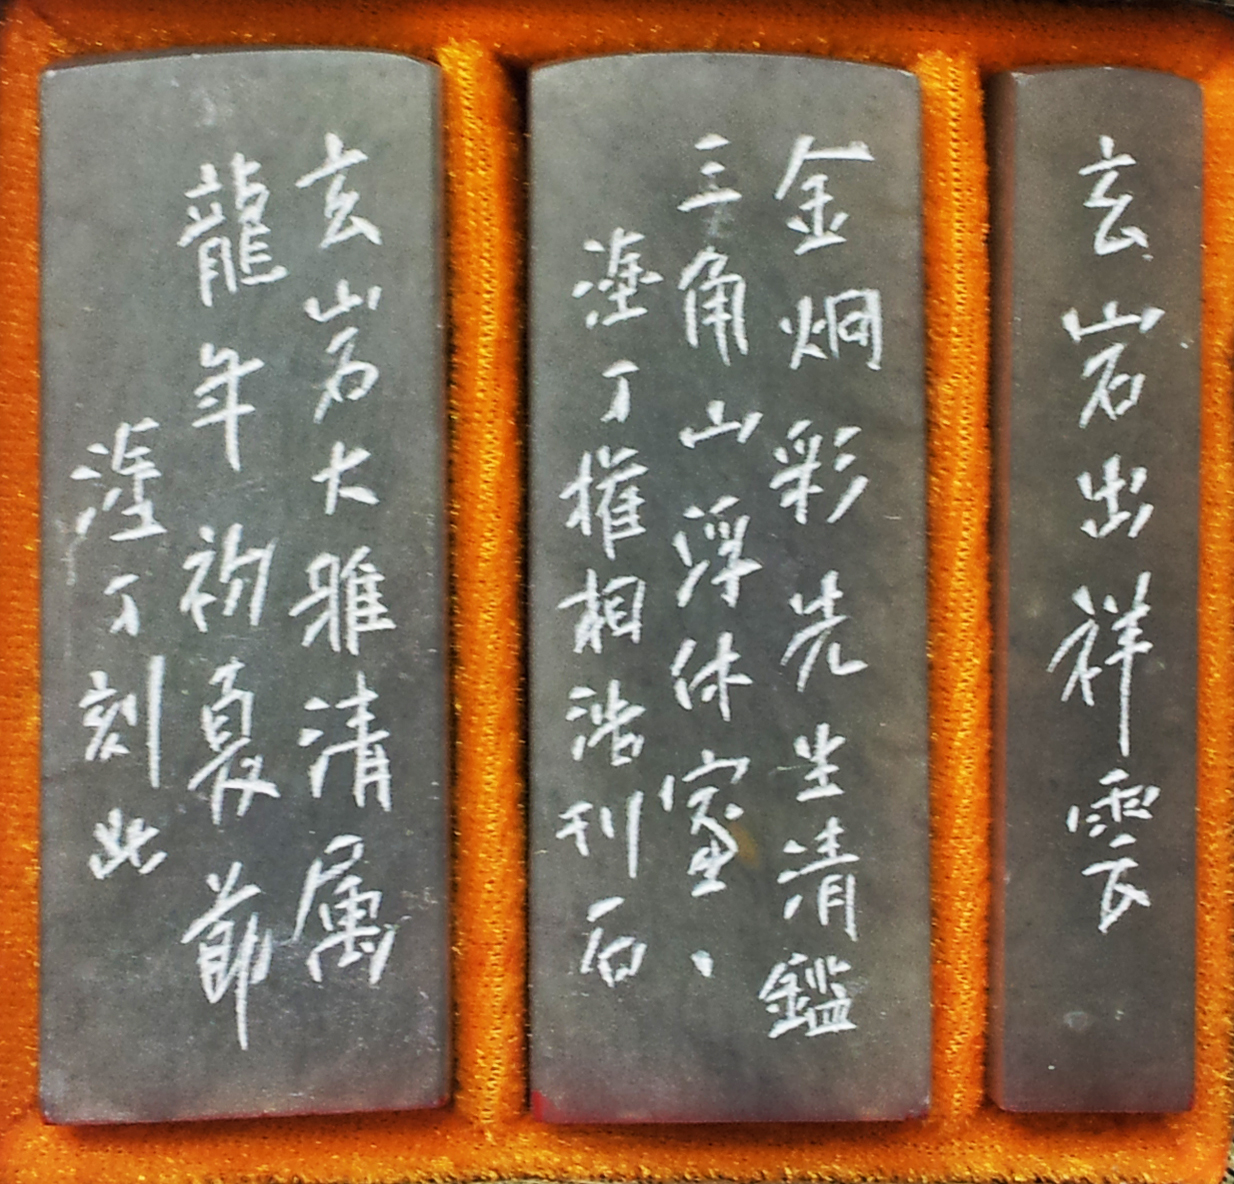 玄岩出祥雲
金炯彩先生清鑑
三角山浮休室、
塗丁權相浩刊石
玄岩大雅清属
龍年初夏節
塗丁刻此